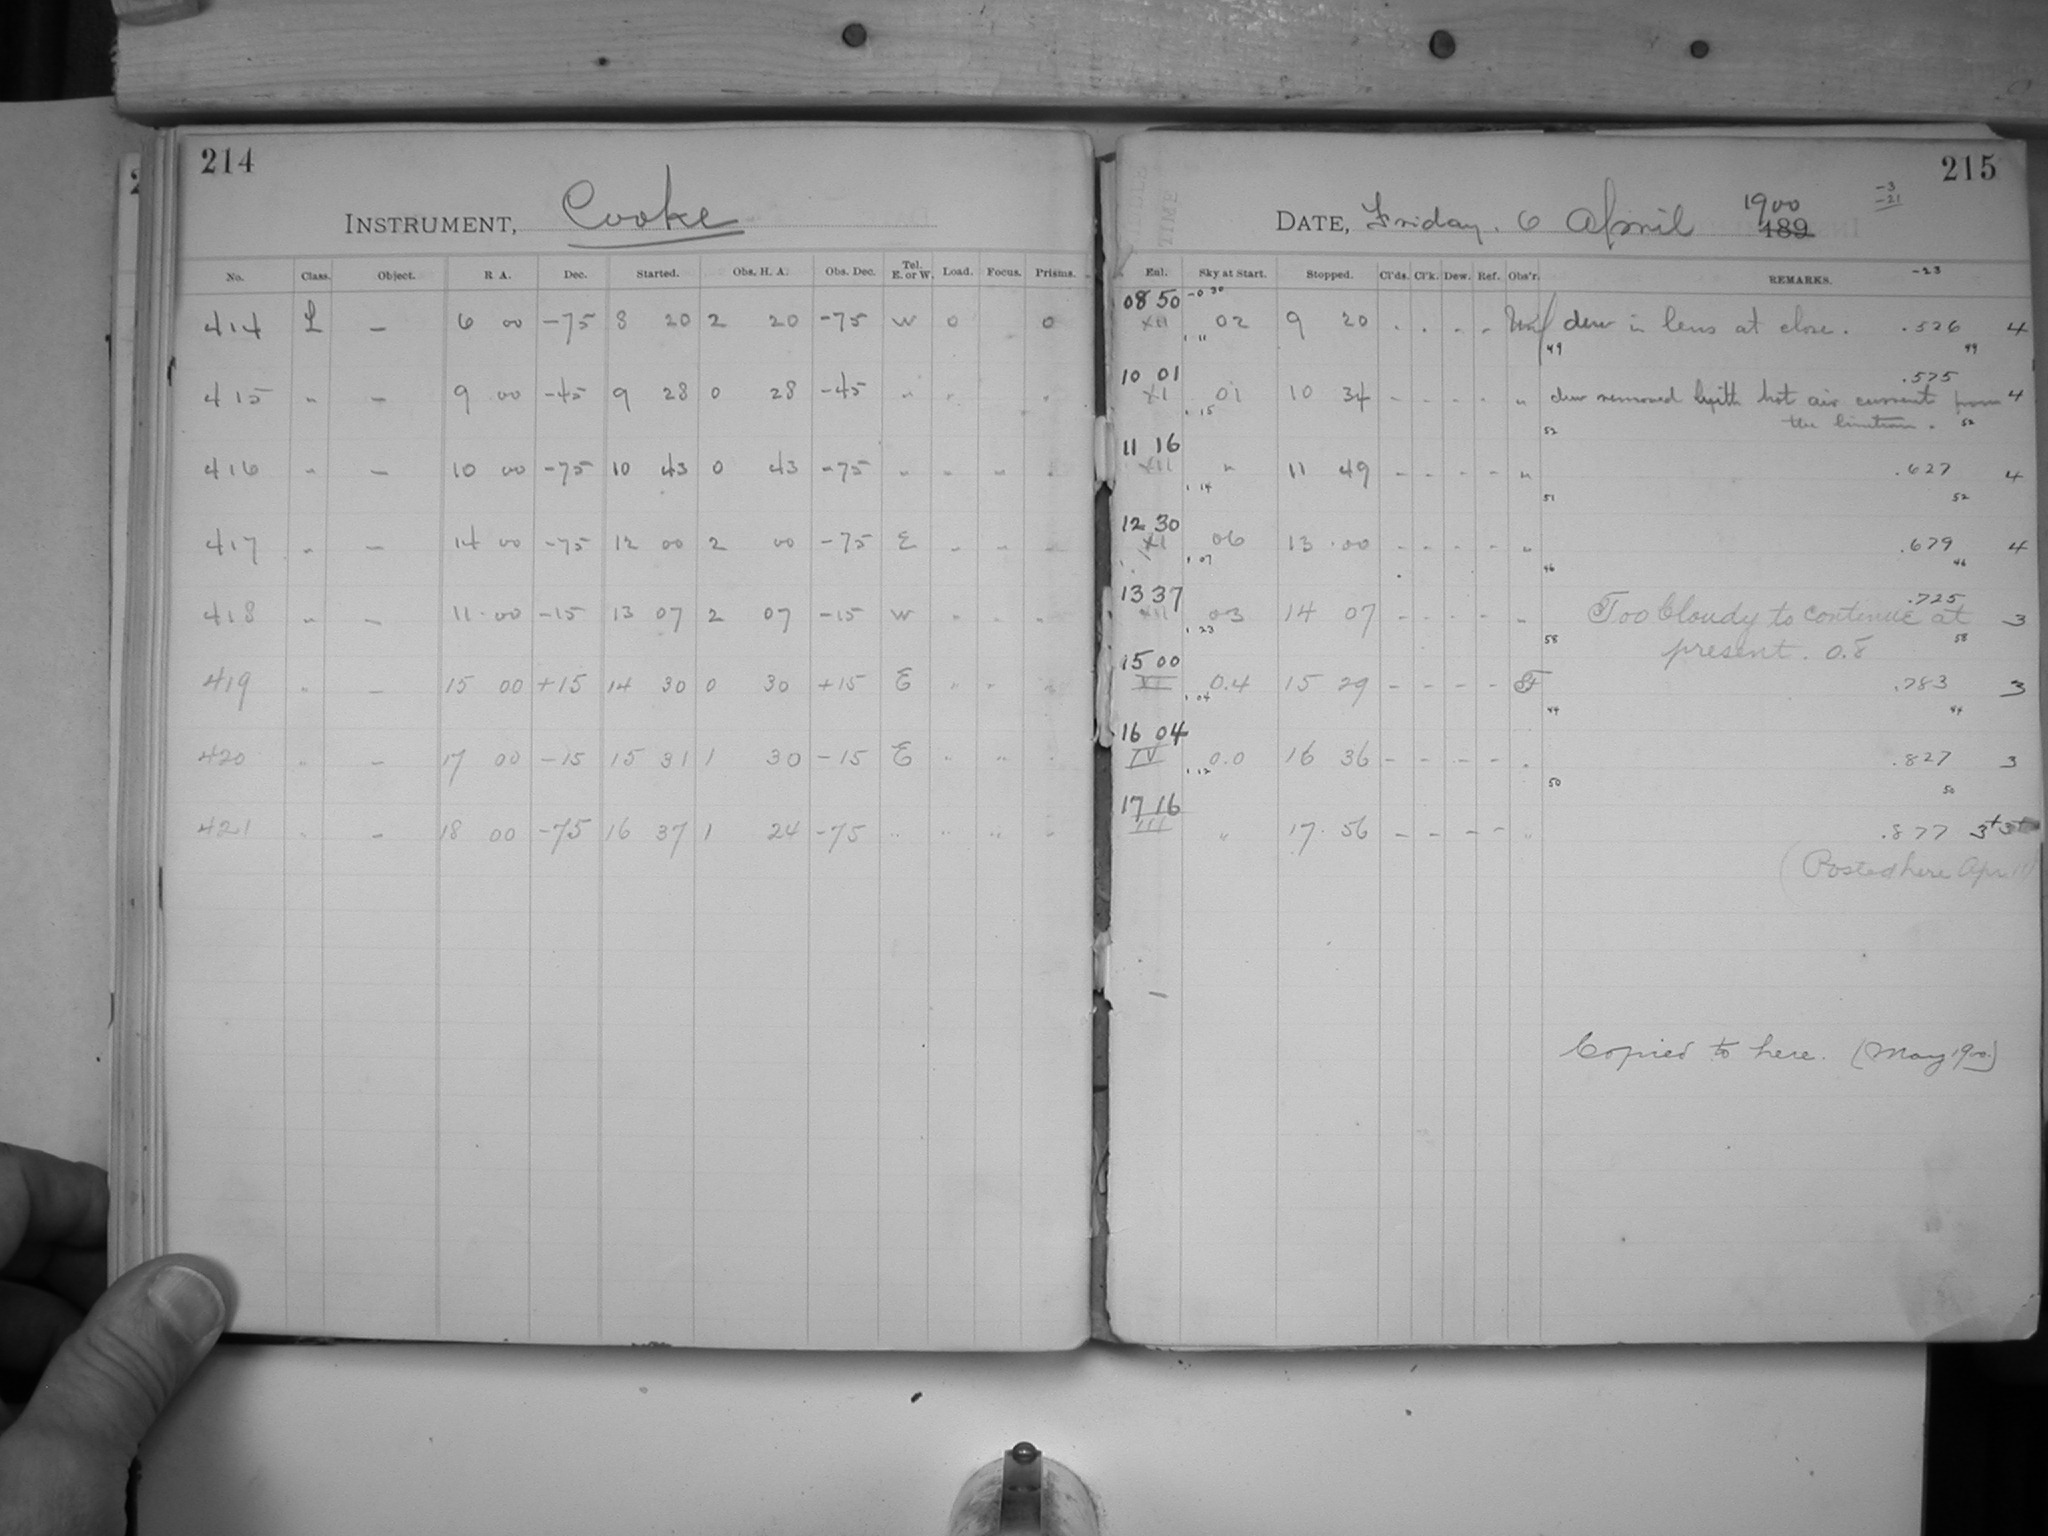 214
INSTRUMENT, Cooke
No. Class. Object. R. A. Dec. Started. Obs. H. A. Obs. Dec. Tel. E. or W. Load. Focus. Prisms.
414 L — 6 00 −75 8 20 2 20 −75 W 0 0
415 " — 9 00 −45 9 28 0 28 −45 " " "
416 " — 10 00 −75 10 43 0 43 −75 " " " "
417 " — 14 00 −75 12 00 2 00 −75 E " " "
418 " — 11 00 −15 13 07 2 07 −15 W " " "
419 " — 15 00 +15 14 30 0 30 +15 E " " "
420 " — 17 00 −15 15 31 1 30 −15 E " " "
421 " — 18 00 −75 16 37 1 24 −75 " " " "
215
−3
−21
1900
DATE, Friday. 6 April 189
−23
Exl. Sky at Start. Stopped. Cl'ds. Cl'k. Dew. Ref. Obs'r. REMARKS.
08 50 −0 30
XII 02 9 20 . . . - dew in lens at close. .526 4
1 11 49 49
10 01 .575
XI 01 10 34 - - - - " dew removed with hot air current from 4
1 15 the 52
52
11 16
XII " 11 49 - - - - " .627 4
1 14 51 52
12 30
XI 06 13 00 - - - - " .679 4
1 07 46 46
13 37 .725
XII 03 14 07 - - - - " Too Cloudy to continue at 3
1 23 58 present. 0.8 58
15 00
XI 0.4 15 29 - - - - .783 3
1 04 44 44
16 04
IV 0.0 16 36 - - - - " .827 3
1 12 50 50
17 16
III " 17 56 - - - - " .877 3+
(Posted here Apr.
Copied to here. (May 1900)